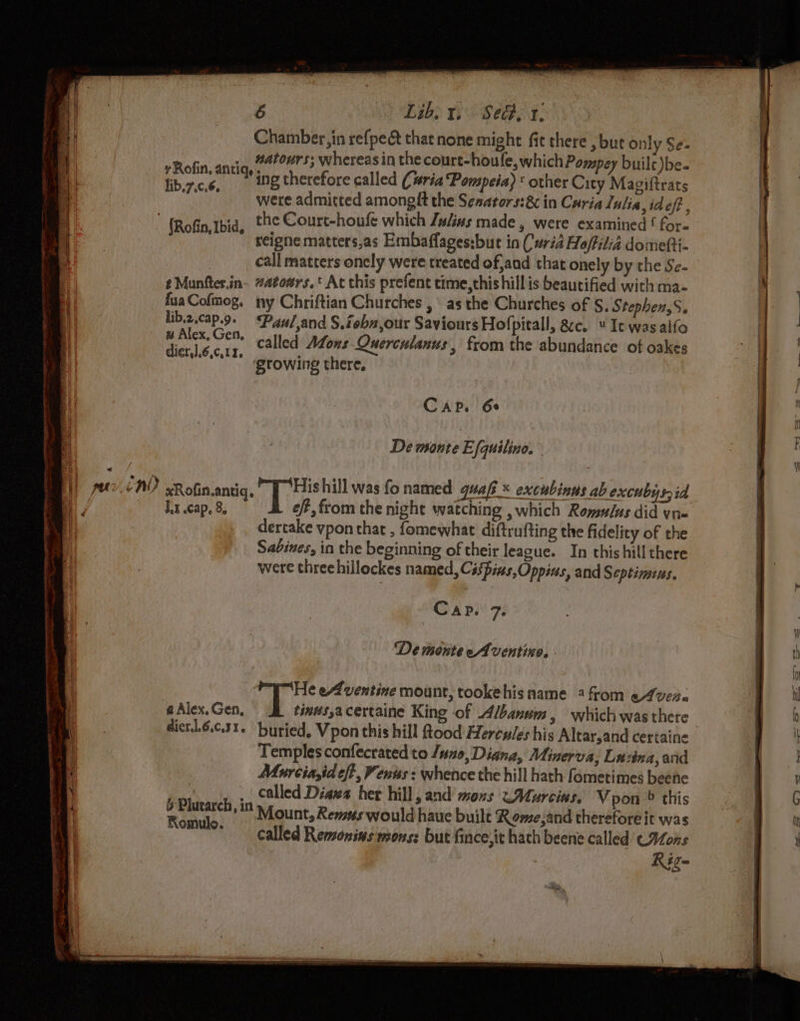 6 Lib. 1. Sect. 1.
Chamber,in reſpect that none might ſit there , but only Se-
natours; whereas in the court-houſe, which Pompey built)be-
r Roſin. antiq. lib.7.c.6.
ing therefore called Curia Pompeia) r other City Magiſtrats
were admitted amongſt the Senators:& in Curia Iulia, id eſt ,
ſRoſin,Ibid,
the Court-houſe which Iulius made , were examined ſ for-
reigne matters,as Embaſſages:but in Curia Hoſtilia domeſti-
call matters onely were treated of,and that onely by the Se-
t Munſter.in ſua Coſmog. lib.2.cap.9.
natours. t At this preſent time,this hill is beautified with ma-
ny Chriſtian Churches , as the Churches of S. Stephen,S.
Paul,and S.Iohn,our Saviours Hoſpitall, &c. u It was alſo
u Alex, Gen, dier.l.6.c.11.
called Mons Querculanus , from the abundance of oakes
growing there.
Cap. 6.
De monte Eſquilino.
xRoſin.antiq. l.1.cap. 8.
This hill was ſo named quaſi x excubinus ab excubijs, id
eſt, from the night watching , which Romulus did vn-
dertake vpon that , ſomewhat diſtruſting the fidelity of the
Sabines, in the beginning of their league. In this hill there
were three hillockes named, Ciſpius,Oppius, and Septimius.
Cap. 7.
De monte Aventino.
The Aventine mount, tooke his name a from Aven-
a Alex.Gen. dier.l.6.c.11.
tinus,a certaine King of Albanum , which was there
buried. Vpon this hill ſtood Hercules his Altar,and certaine
Temples conſecrated to Iuno,Diana, Minerva, Lucina, and
Murcia,id eſt, Venus : whence the hill hath ſometimes beene
called Diana her hill , and mons Murcius. Vpon b this
b Plutarch, in Romulo.
Mount, Remus would haue built Rome,and therefore it was
called Remonius mons: but ſince,it hath beene called Mons
Rig-